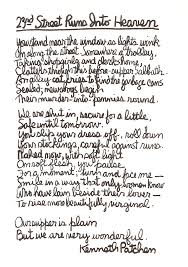 23rd Street Runs Into Heaven
You stand near the window as lights wink
On along the street. Somewhere a trolley,
Taking shopgirls and clerks home,
Clatters through this before-supper Sabbath.
An alley cat cries to find the garbage cans
Sealed; newsboys begin
Their murder-into-pennies round.
We are shut in, secure for a little,
Safe until tomorrow.
You slip your dress off, roll down
Your stockings, careful against runs.
Naked now, with soft light
On soft flesh, you pause
For a moment; turn and face me—
Smile in a way that only women know
Who have lain beside their lover
To rise more beautifully virginal.
Our supper is plain
But we are very wonderful.
Kenneth Patchen